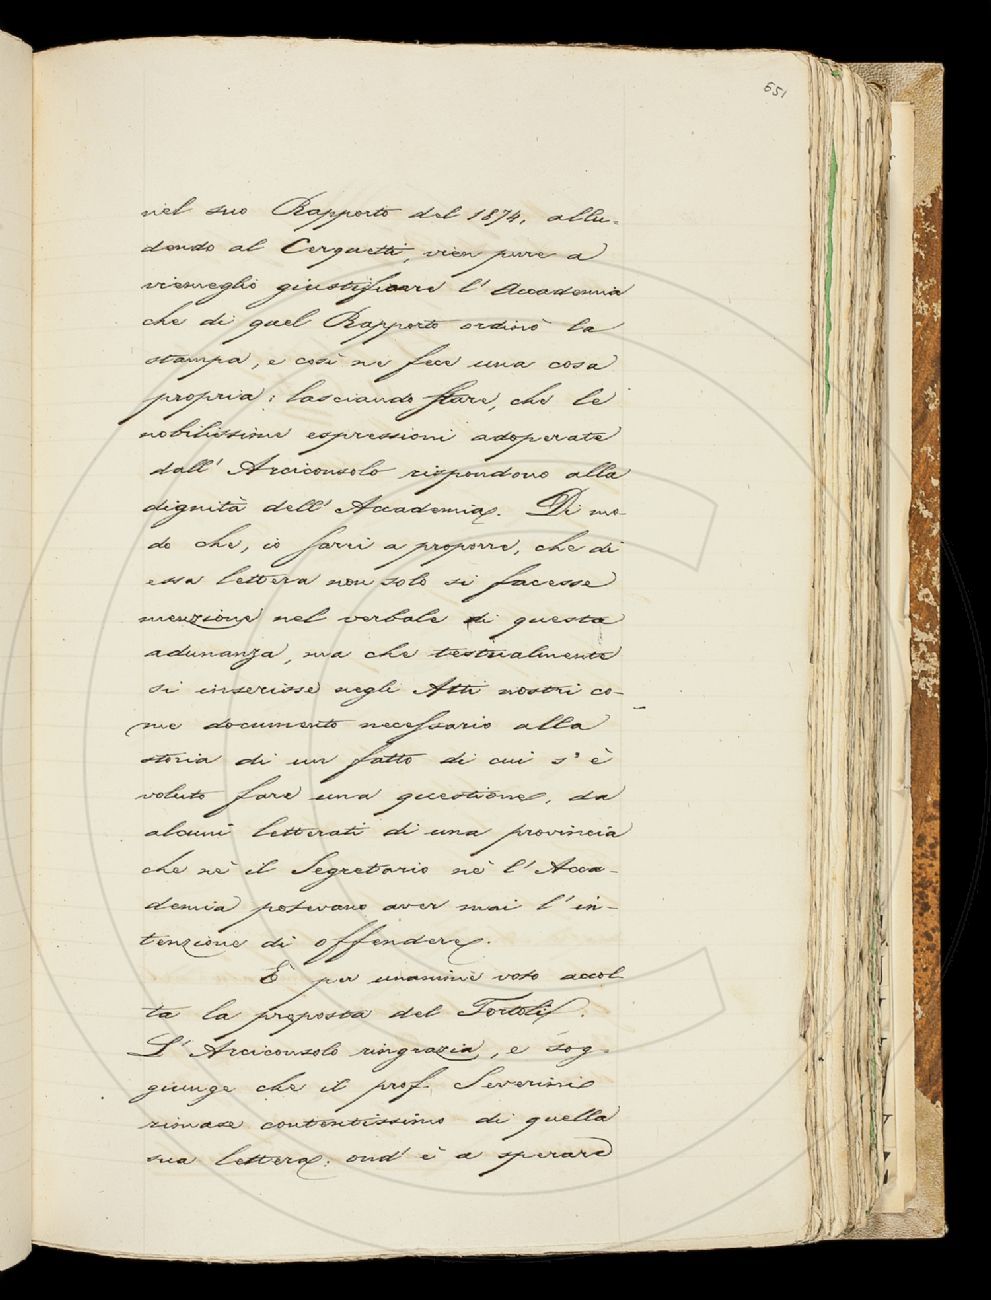 651
nel suo Rapporto del 1874, allu-
dendo al Cerquetti, vien pure a
viemeglio giustificare l'Accademia
che di quel Rapporto ordinò la
stampa, e così ne fece una cosa
propria; lasciando stare, che le
nobilissime espressioni adoperate
dall'Arciconsolo rispondono alla
dignità dell'Accademia. Di mo-
do che, io sarei a proporre, che di
essa lettera non solo si facesse
menzione nel verbale di questa
adunanza, ma che testualmente
si inserisse negli Atti nostri co-
me documento necessario alla
storia di un fatto di cui s'è
voluto fare una questione, da
alcuni letterati di una provincia
che nè il Segretario nè l'Acca-
demia potevano aver mai l'in-
tenzione di offendere.
È per unanime voto accol-
ta la proposta del Tortoli.
L'Arciconsolo ringrazia, e sog-
giunge che il prof. Severini
rimase contentissimo di quella
sua lettera; ond'è a sperare